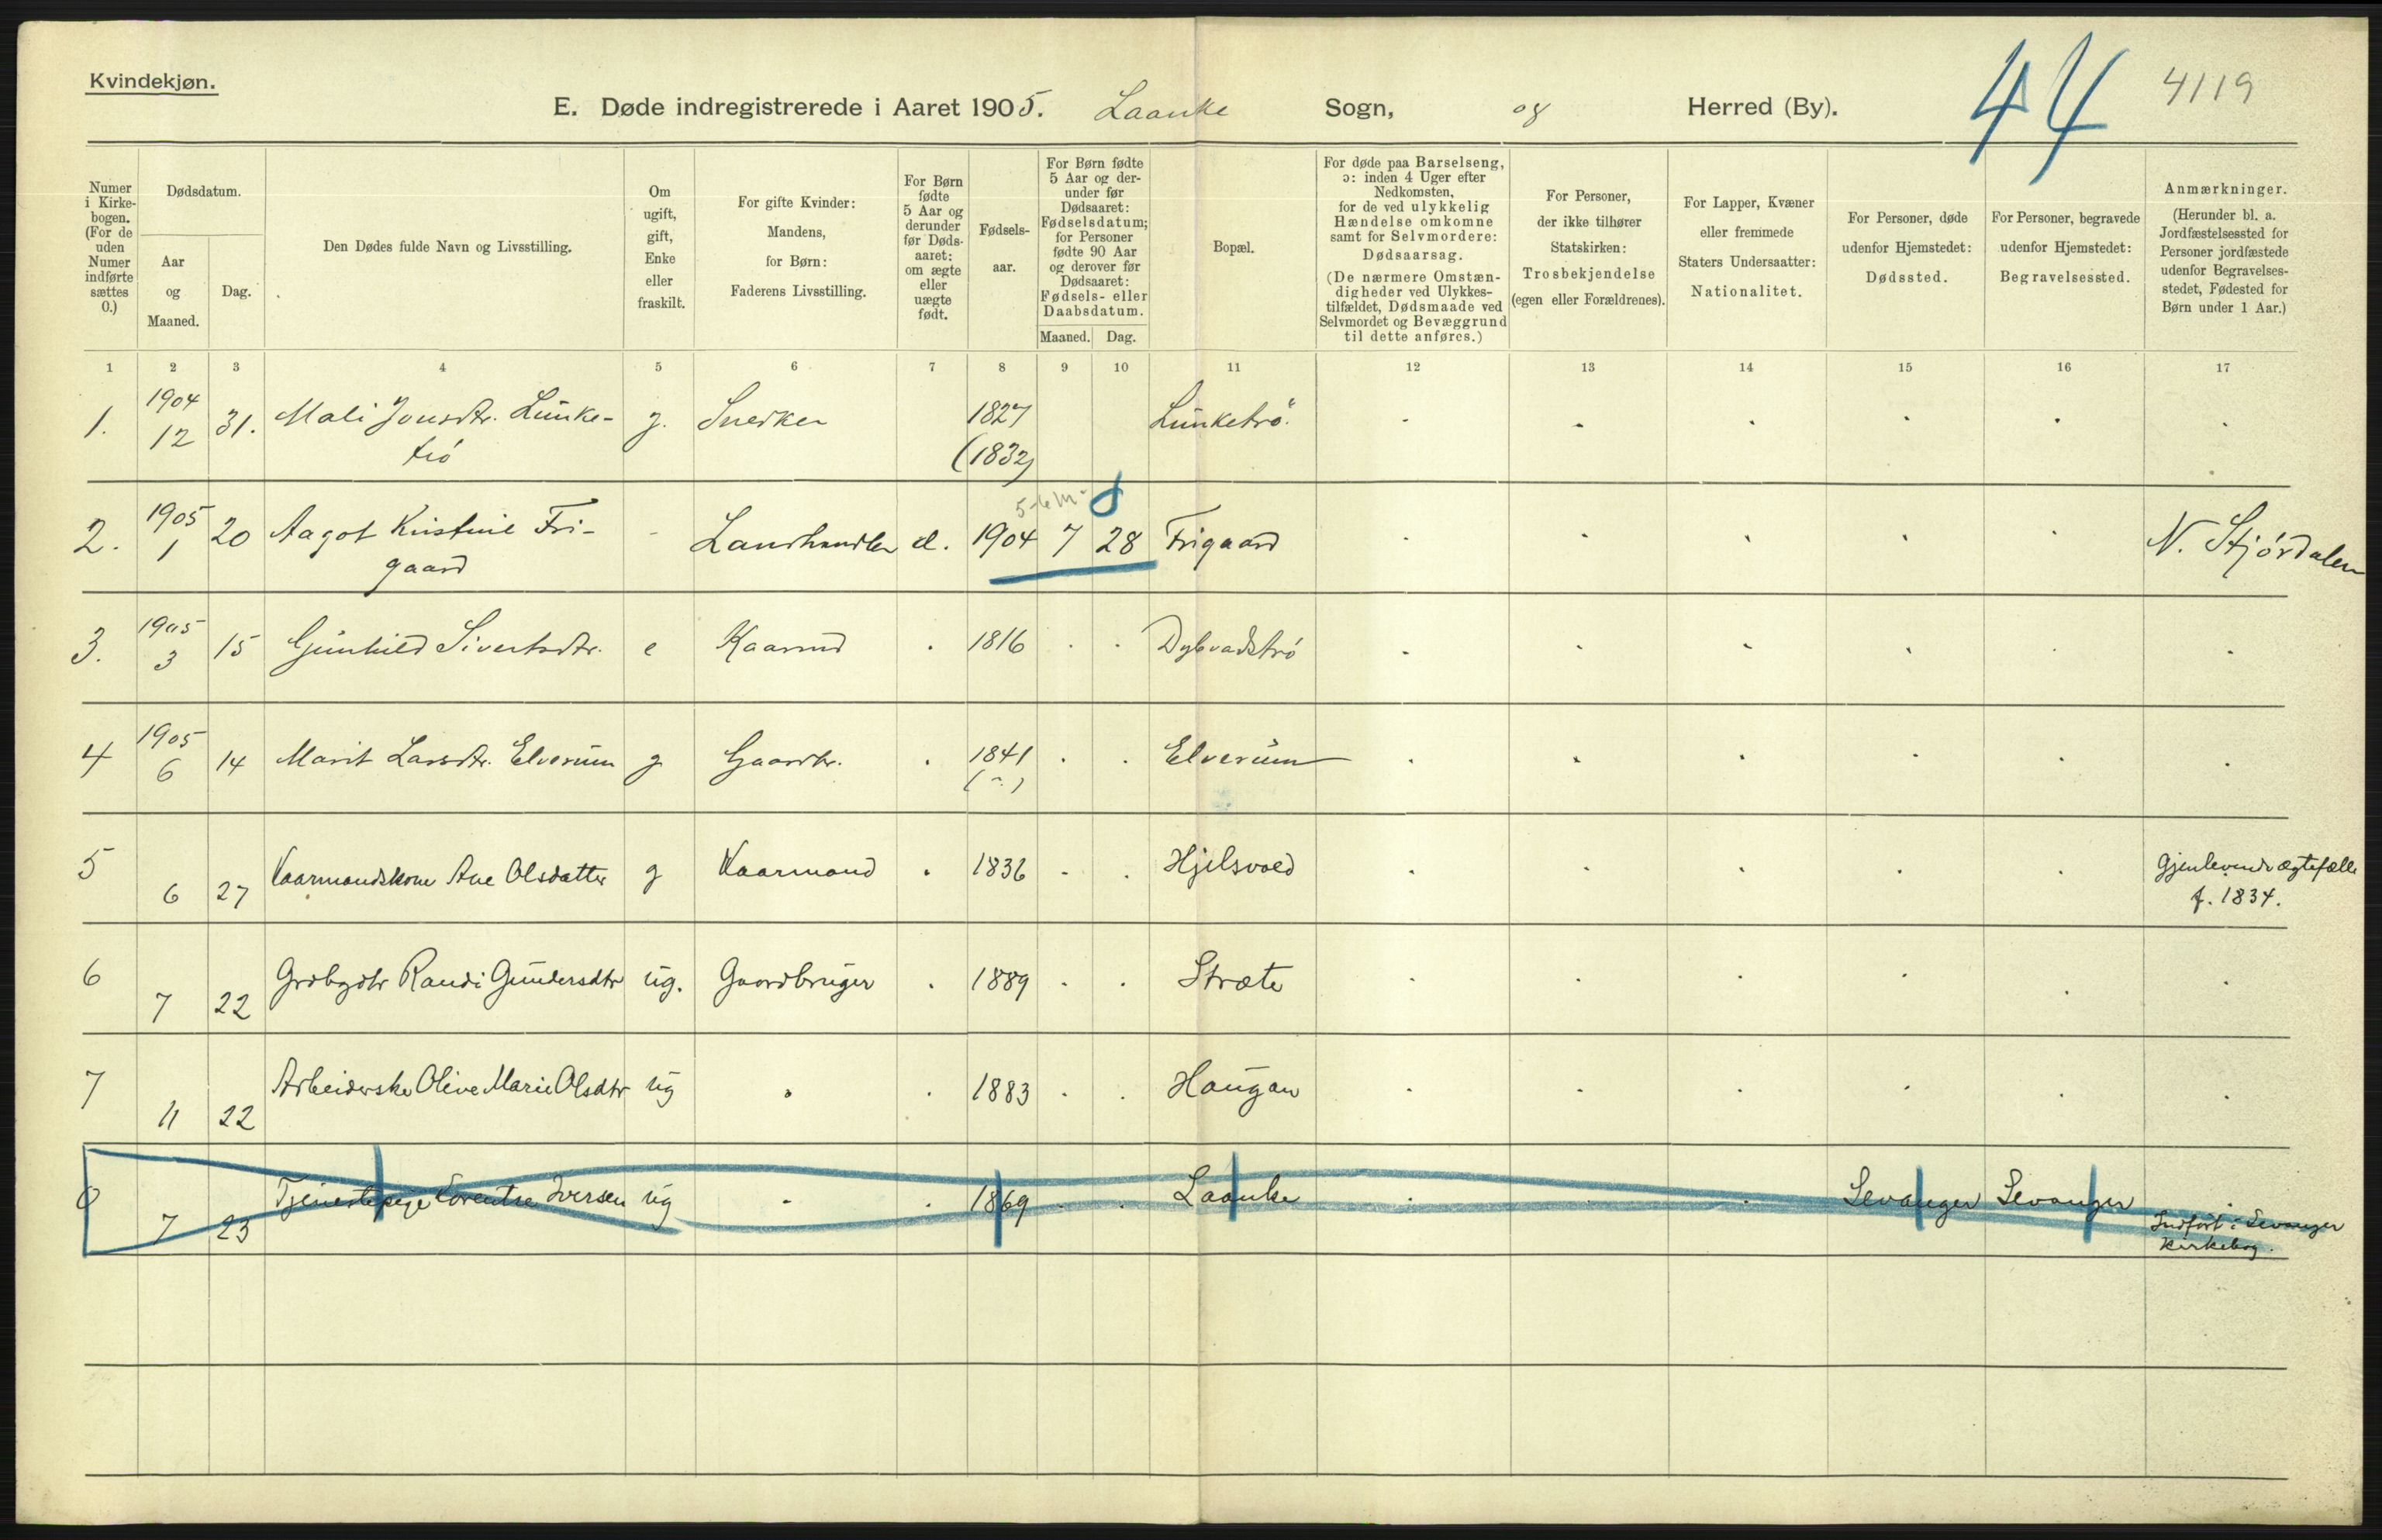 Kvindekjøn.
E. Døde indregistrerede i Aaret 1905. Laanke Sogn, og Herred (By).
44
4119
Numer i Kirke- bogen. (For de uden Numer indførte sættes 0.)
Dødsdatum.
Aar og Maaned.
Dag.
Den Dødes fulde Navn og Livsstilling.
Om ugift, gift, Enke eller fraskilt.
For gifte Kvinder: Mandens, for Børn: Faderens Livsstilling.
For Børn fødte 5 Aar og derunder før Døds- aaret: om ægte eller uægte født.
Fødsels- aar.
For Børn fødte 5 Aar og der- under før Dødsaaret: Fødselsdatum; for Personer fødte 90 Aar og derover før Dødsaaret: Fødsels- eller Daabsdatum.
Maaned. Dag.
Bopæl.
For døde paa Barselseng, ɔ: inden 4 Uger efter Nedkomsten, for de ved ulykkelig Hændelse omkomne samt for Selvmordere: Dødsaarsag. (De nærmere Omstæn- digheder ved Ulykkes- tilfældet, Dødsmaade ved Selvmordet og Bevæggrund til dette anføres.)
For Personer, der ikke tilhører Statskirken: Trosbekjendelse (egen eller Forældrenes).
For Lapper, Kvæner eller fremmede Staters Undersaatter: Nationalitet.
For Personer, døde udenfor Hjemstedet: Dødssted.
For Personer, begravede udenfor Hjemstedet: Begravelsessted.
Anmærkninger. (Herunder bl. a. Jordfæstelsessted for Personer jordfæstede udenfor Begravelses- stedet, Fødested for Børn under 1 Aar.)
1 2 3 4 5 6 7 8 9 10 11 12 13 14 15 16 17
1. 1904 12 31. Mali Jonsdtr. Lunke- g. Snedker 1827 Lunketrø
trø (1832)
5-6 m
2. 1905 1 20 Aagot Kristine Fri- - Landhandler æ. 1904 7 28 Frigaard N. Stjørdalen
gaard
3. 1905 3 15 Gunhild Sivertsdtr. e Kaarmd 1816 Dybvadstrø
4 1905 6 14 Marit Larsdtr. Elverum g Gaardbr. 1841 Elverum
5 6 27 Kaarmandskone Ane Olsdatter g Kaarmand 1836 Hjelsvold Gjenlevende ægtefælle
f. 1834.
6 7 22 Grdbgdtr Randi Gundersdtr ug. Gaardbruger 1889 Stræte
7 11 22 Arbeiderske Olive Marie Olsdtr ug 1883 Haugan
8 7 23 Tjenestepige Lorentse Iversen ug - 1869 Laanke Levanger Levanger
Indført i Levanger
Kirkebog.